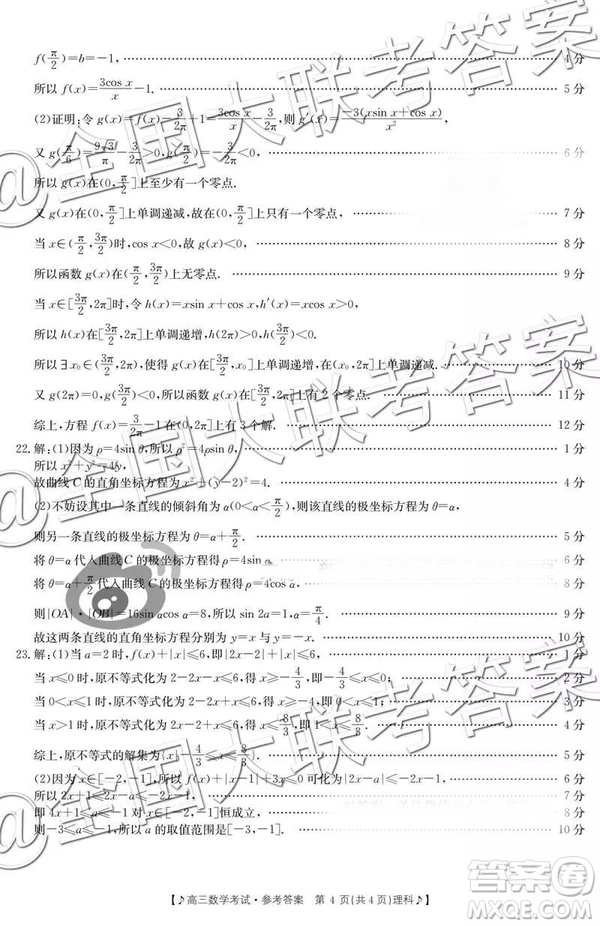 f(π/2)=b=-1, 4分
所以 f(x)=3cos x/x-1. 5分
(2)证明:令 g(x)=f(x)-3/2π+1=3cos x/x-3/2π,则 g′(x)=-3(xsin x+cos x)/x²,
又 g(π/6)=9√3/π-3/2π>0, g(π/2)=-3/2π<0, 6分
所以 g(x)在(0,π/2]上至少有一个零点.
又 g(x)在(0,π/2]上单调递减,故在(0,π/2]上有一个零点. 7分
当 x∈(π/2,3π/2)时,cos x<0,故 g(x)<0, 8分
所以函数 g(x)在(π/2,3π/2)上无零点. 9分
当 x∈[3π/2,2π]时,令 h(x)=xsin x+cos x,h′(x)=xcos x>0,
所以 h(x)在[3π/2,2π]上单调递增,h(2π)>0,h(3π/2)<0.
所以∃x₀∈(3π/2,2π),使得 g(x)在[3π/2,x₀)上单调递增,在(x₀,2π]上单调递减. 10分
又 g(2π)=0,g(3π/2)<0,所以 g(x)在[3π/2,2π]上有2个零点. 11分
综上,方程 f(x)=3/2π-1在(0,2π]上有3个解. 12分
22.解:(1)因为ρ=4sinθ,所以ρ²=4ρsinθ, 1分
所以 x²+y²=4y,
故曲线 C 的直角坐标方程为 x²+(y-2)²=4. 4分
(2)不妨设其中一条直线的倾斜角为α(0<α<π/2),则该直线的极坐标方程为θ=α,
则另一条直线的极坐标方程为θ=α+π/2. 5分
将θ=α代入曲线 C 的极坐标方程得ρ=4sin 6分
将θ=α+π/2代入曲线 C 的极坐标方程得ρ= 8分
则|OA|·|OB|=16sin αcos α=8,所以 sin 2α=1,α=π/4. 9分
故这两条直线的直角坐标方程分别为 y=x 与 y=-x. 10分
23.解:(1)当 a=2时,f(x)+|x|≤6,即|2x-2|+|x|≤6, 1分
当 x≤0时,原不等式化为2-2x-x≤6,得 x≥-4/3,即-4/3≤x≤0; 2分
当0<x≤1时,原不等式化为2-2x+x≤6,得 x≥-4,即0<x≤1; 3分
当 x>1时,原不等式化为2x-2+x≤6,得 x≤8/3,即1<x≤8/3. 4分
综上,原不等式的解集为{x|-4/3≤x≤8/3}. 5分
(2)因为 x∈[-2,-1],所以 f(x)+|x-1|+3x≤0可化为|2x-a|≤-2x-1, 6分
所以2x+1≤2x-a≤-2x-1, 7分
即4x+1≤a≤-1对 x∈[-2,-1]恒成立, 8分
则-3≤a≤-1,所以 a 的取值范围是[-3,-1]. 10分
【♪高三数学考试·参考答案 第4页(共4页)理科♪】
@全国大联考答案
@全国大联考答案
@全国大联考答案
答案圈
MXQE.COM